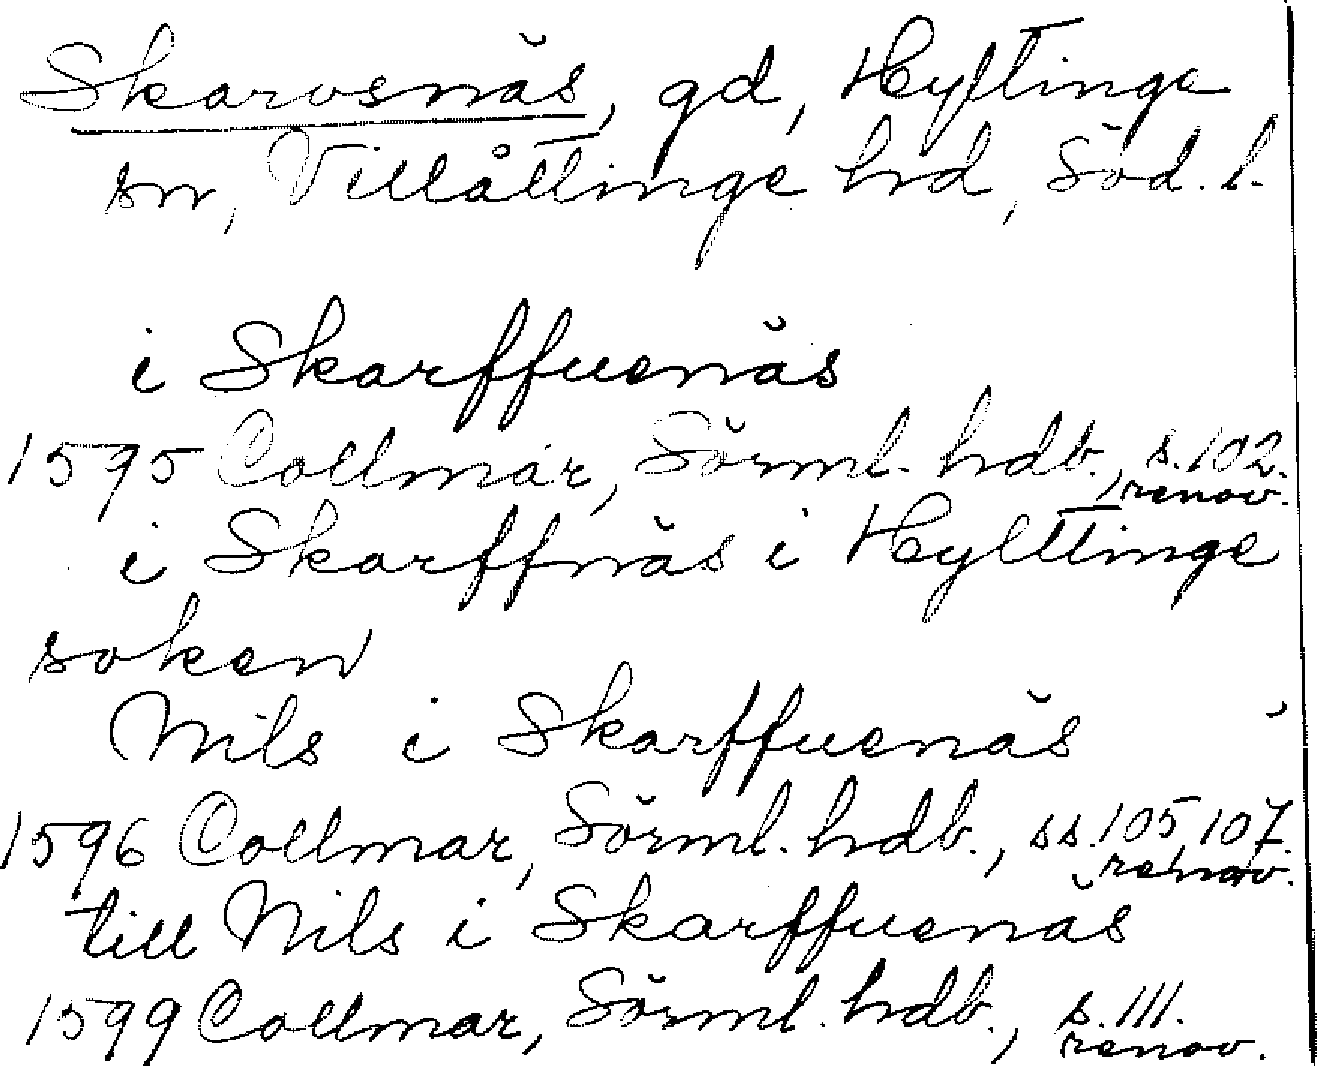 Skarvsnäs, gd, Hyltinge
sn, Villåttinge hd, Söd. l.
i Skarffuenäs
1595 Collmar, Sörml. hdb., s. 102.
renov.
i Skarffnäs i Hylttinge
soken
Nils i Skarffuenäs
1596 Collmar, Sörml. hdb., ss. 105, 107.
renov.
till Nils i Skarffuenäs
1599 Collmar, Sörml. hdb., s. 111.
renov.